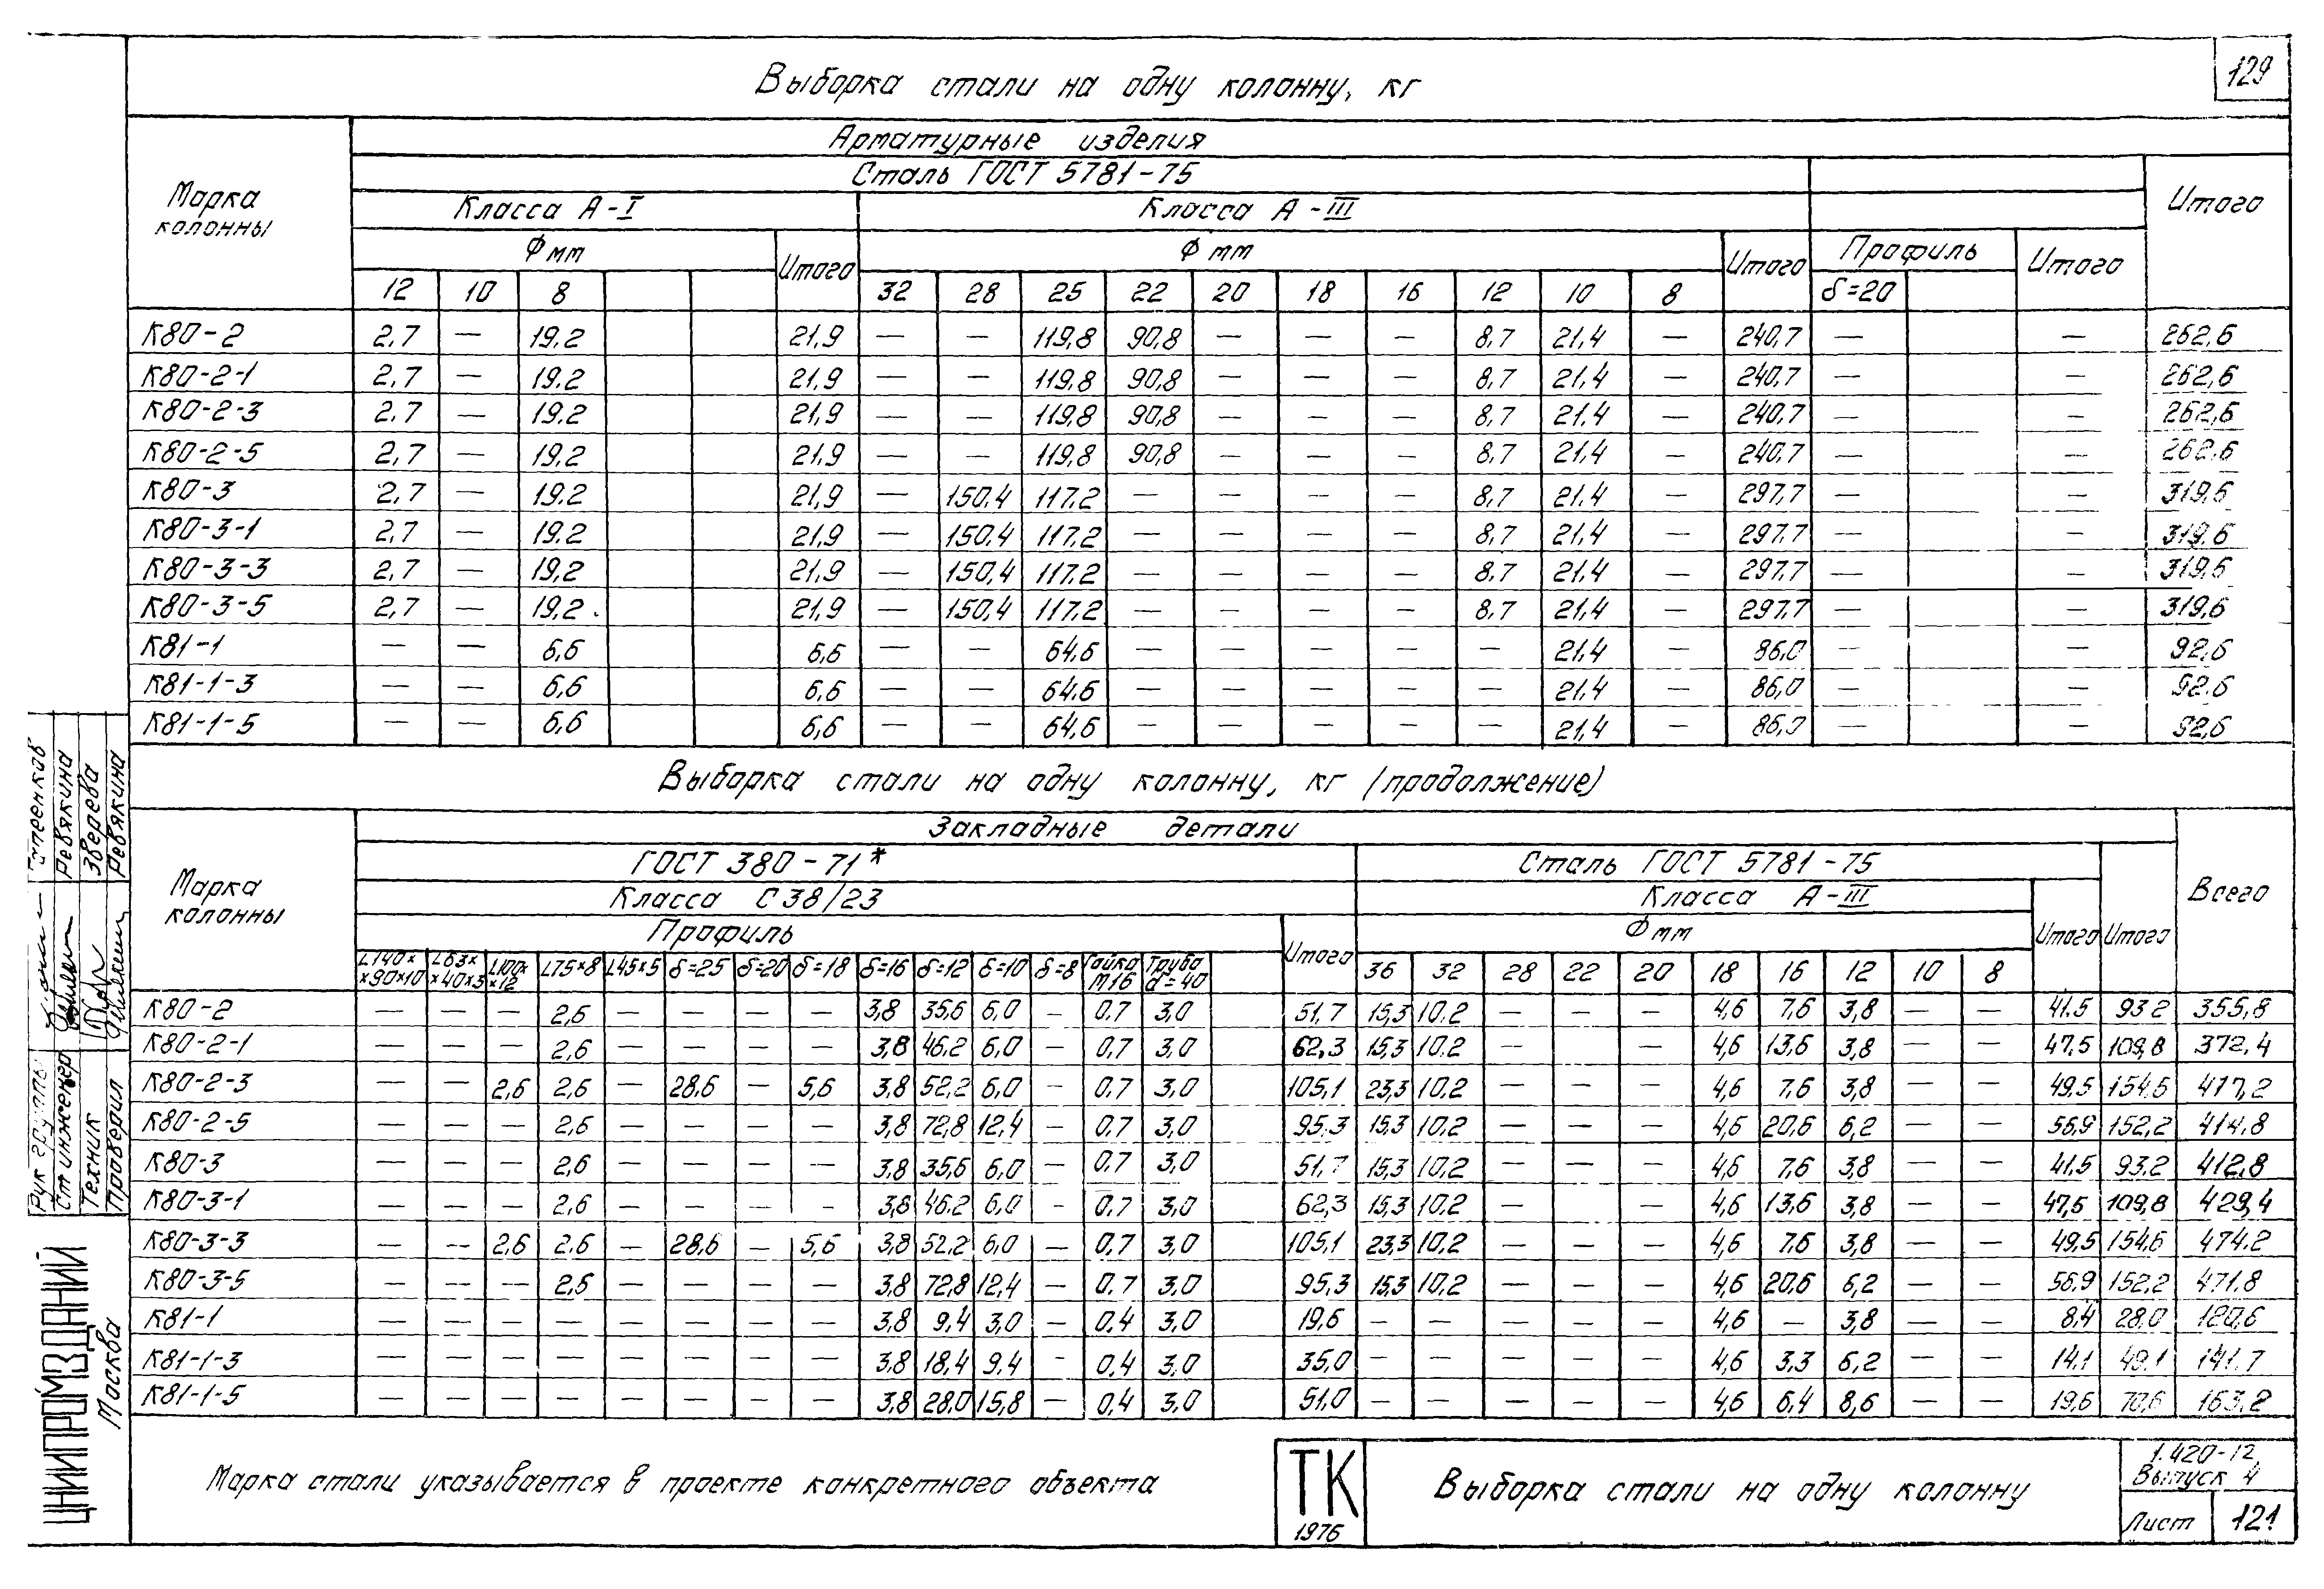 129
Выборка стали на одну колонну, кг
Марка колонны
Арматурные изделия
Сталь ГОСТ 5781-75
Класса А-I Класса А-III
Ф мм Итого Ф мм Итого Профиль Итого Итого
12 10 8 32 28 25 22 20 18 16 12 10 8 δ=20
К80-2 2,7 — 19,2 21,9 — — 119,8 90,8 — — — 8,7 21,4 — 240,7 — — 262,6
К80-2-1 2,7 — 19,2 21,9 — — 119,8 90,8 — — — 8,7 21,4 — 240,7 — — 262,6
К80-2-3 2,7 — 19,2 21,9 — — 119,8 90,8 — — — 8,7 21,4 — 240,7 — — 262,6
К80-2-5 2,7 — 19,2 21,9 — — 119,8 90,8 — — — 8,7 21,4 — 240,7 — — 262,6
К80-3 2,7 — 19,2 21,9 — 150,4 117,2 — — — — 8,7 21,4 — 297,7 — — 319,6
К80-3-1 2,7 — 19,2 21,9 — 150,4 117,2 — — — — 8,7 21,4 — 297,7 — — 319,6
К80-3-3 2,7 — 19,2 21,9 — 150,4 117,2 — — — — 8,7 21,4 — 297,7 — — 319,6
К80-3-5 2,7 — 19,2 21,9 — 150,4 117,2 — — — — 8,7 21,4 — 297,7 — — 319,6
К81-1 — — 6,6 6,6 — — 64,6 — — — — — 21,4 — 86,0 — — 92,6
К81-1-3 — — 6,6 6,6 — — 64,6 — — — — — 21,4 — 86,0 — — 92,6
К81-1-5 — — 6,6 6,6 — — 64,6 — — — — — 21,4 — 86,0 — — 92,6
Выборка стали на одну колонну, кг (продолжение)
Марка колонны
Закладные детали
ГОСТ 380-71* Сталь ГОСТ 5781-75
Класса С38/23 Класса А-III Всего
Профиль Итого Ф мм Итого Итого
L140××90×10 L63××40×5 L100××12 L75×8 L45×5 δ=25 δ=20 δ=18 δ=16 δ=12 δ=10 δ=8 Гайка М16 Труба d=40 36 32 28 22 20 18 16 12 10 8
К80-2 — — — 2,6 — — — — 3,8 35,6 6,0 — 0,7 3,0 51,7 15,3 10,2 — — — 4,6 7,6 3,8 — — 41,5 93,2 355,8
К80-2-1 — — — 2,6 — — — — 3,8 46,2 6,0 — 0,7 3,0 62,3 15,3 10,2 — — — 4,6 13,6 3,8 — — 47,5 109,8 372,4
К80-2-3 — — 2,6 2,6 — 28,6 — 5,6 3,8 52,2 6,0 — 0,7 3,0 105,1 23,3 10,2 — — — 4,6 7,6 3,8 — — 49,5 154,6 417,2
К80-2-5 — — — 2,6 — — — — 3,8 72,8 12,4 — 0,7 3,0 95,3 15,3 10,2 — — — 4,6 20,6 6,2 — — 56,9 152,2 414,8
К80-3 — — — 2,6 — — — — 3,8 35,6 6,0 — 0,7 3,0 51,7 15,3 10,2 — — — 4,6 7,6 3,8 — — 41,5 93,2 412,8
К80-3-1 — — — 2,6 — — — — 3,8 46,2 6,0 — 0,7 3,0 62,3 15,3 10,2 — — — 4,6 13,6 3,8 — — 47,5 109,8 429,4
К80-3-3 — — 2,6 2,6 — 28,6 — 5,6 3,8 52,2 6,0 — 0,7 3,0 105,1 23,3 10,2 — — — 4,6 7,6 3,8 — — 49,5 154,6 474,2
К80-3-5 — — — 2,6 — — — — 3,8 72,8 12,4 — 0,7 3,0 95,3 15,3 10,2 — — — 4,6 20,6 6,2 — — 56,9 152,2 471,8
К81-1 — — — — — — — — 3,8 9,4 3,0 — 0,4 3,0 19,6 — — — — — 4,6 — 3,8 — — 8,4 28,0 120,6
К81-1-3 — — — — — — — — 3,8 18,4 9,4 — 0,4 3,0 35,0 — — — — — 4,6 3,3 6,2 — — 14,1 49,1 141,7
К81-1-5 — — — — — — — — 3,8 28,0 15,8 — 0,4 3,0 51,0 — — — — — 4,6 6,4 8,6 — — 19,6 70,6 163,2
Марка стали указывается в проекте конкретного объекта
ТК
1976
Выборка стали на одну колонну
1.420-12
Выпуск 4
Лист 121
Рук группы
Ст инженер Ревякина
Техник Зверева
Проверил Ревякина
ЦНИИПРОМЗДАНИЙ
Москва